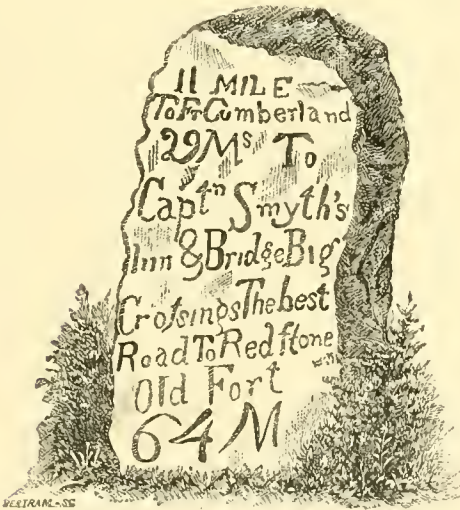 11 MILE
To Fr Cumberland
29 Ms To
Captn Smyth's
Inn & Bridge Big
Croſsings The best
Road To Redſtone
Old Fort
64 M
BERTRAM-SC